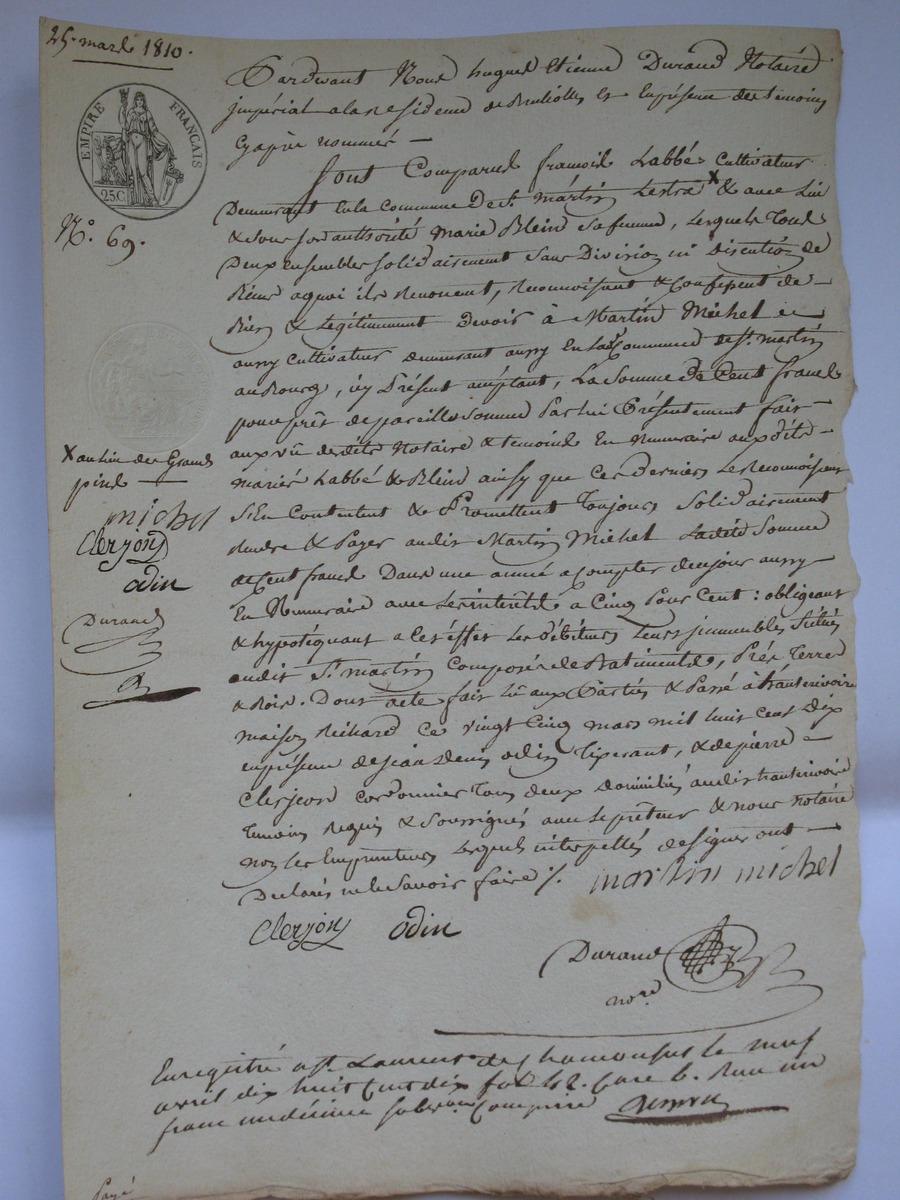 25. mars 1810.
EMPIRE FRANÇAIS
25.C.
N.° 69.
Pardevant Nous hugues Etienne Durand Notaire
impérial a la residence de Brullioles Et En présence des témoins
Cy après nommés —
Sont Comparus francois Labbé Cultivateur
Demeurant En la Commune de S.t Martin Lestra X & avec Lui
& sous son authorité Marie Blein Sa femme, Lesquels Tous
Deux ensembles solidairement Sans Division ni Discution de
Biens a quoi ils Renoncent, Reconnoissent & Confessent de
Bien & Légitimement Devoir à Martin Michel
aussy Cultivateur Demeurant aussy En la Commune de S.t Martin
au Bourg, icy Présent acceptant, La Somme de Cent francs
pour prêt de pareille Somme Par lui Présentement fait
aux vû desdits Notaire & témoins En Numeraire auxdits
mariés Labbé & Blein ainsy que Ces Derniers Le Reconnoissent
S'En Contentent & Promettent Toujours Solidairement
Rendre & Payer audit Martin Michel Ladite Somme
de Cent francs Dans une année a Compter de ce jour aussy
En Numeraire avec Les intérêts a Cinq Pour Cent : obligeant
& hypotéquant a Cet éffet Les Débiteurs Leurs immeubles Situés
audit S.t Martin Composés de Batiments, Prés Terres
& Bois. Dont acte fait Lû aux Parties & Passé à
maison Richard Ce vingt Cinq mars mil huit Cent Dix
en présence de Jean Denis odin Tixerant, & de pierre
Clerjeon Cordonnier Tous deux Domiciliés audit
Temoins Requis & Soussignés avec Le prêteur & nous Notaire
non Les Emprunteurs Lesquels interpellés de signer ont
Declarés ne le Savoir faire /.
martin michel
X au lieu des Grands
pins
michel
Clerjon
odin
Durand
Clerjon odin
Durand
no.re
Enregistré a S.t Laurent de Chamousset le neuf
avril dix huit Cent dix fol. 42. Case 6. Reçu un
franc un décime subv.on Comprise
Payé